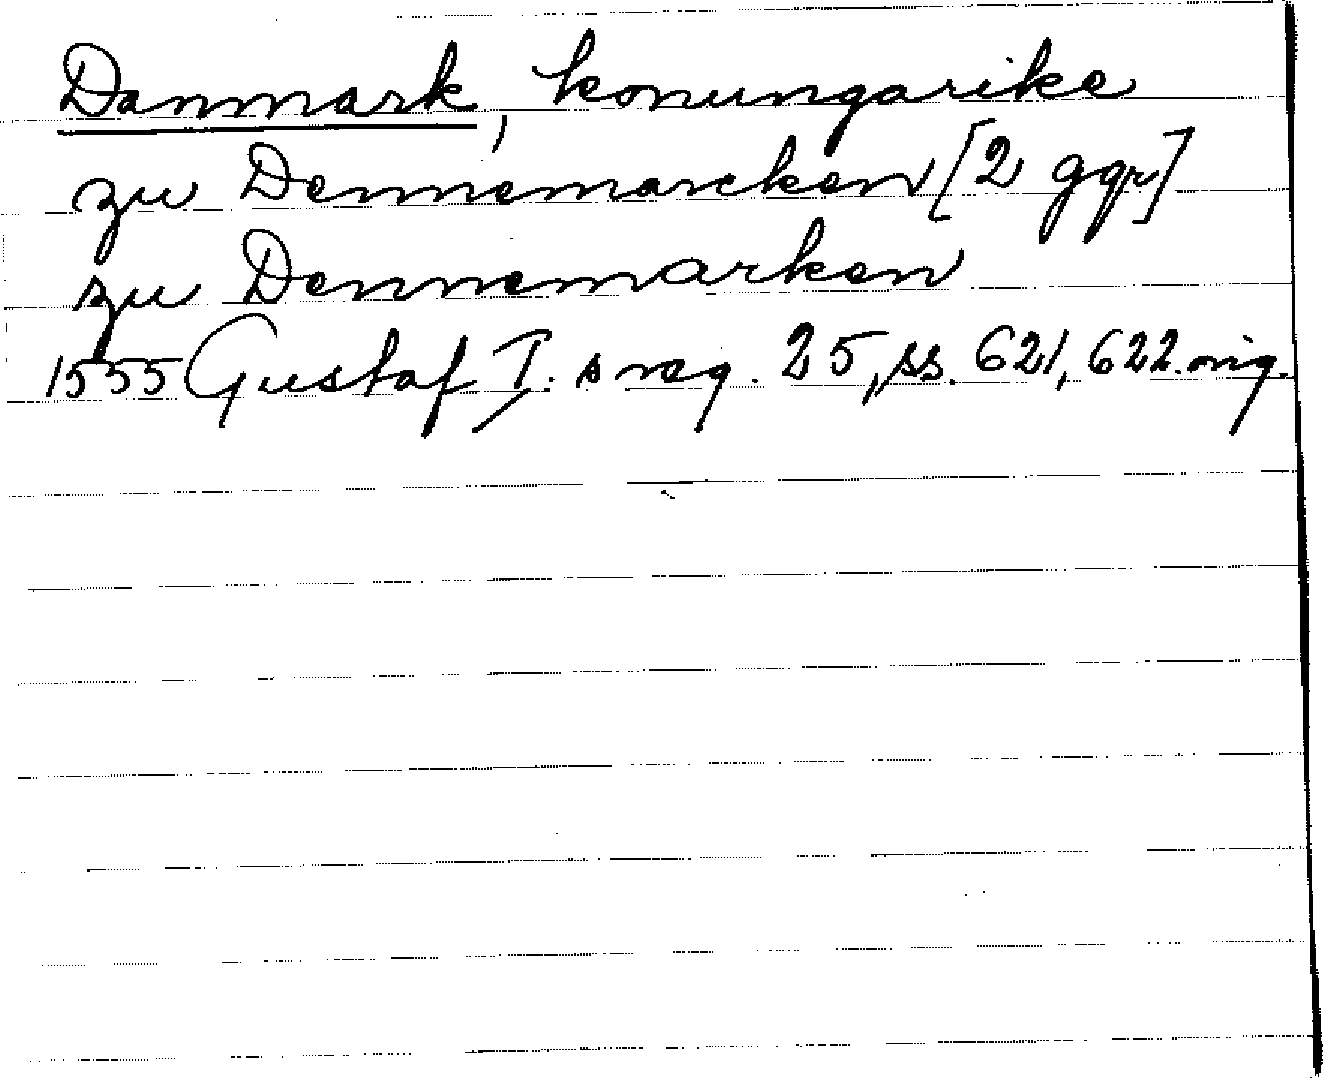 Danmark, konungarike
zu Dennemarcken [2 ggr]
zu Dennemarken
1555 Gustaf I:s reg. 25, ss. 621, 622. orig.